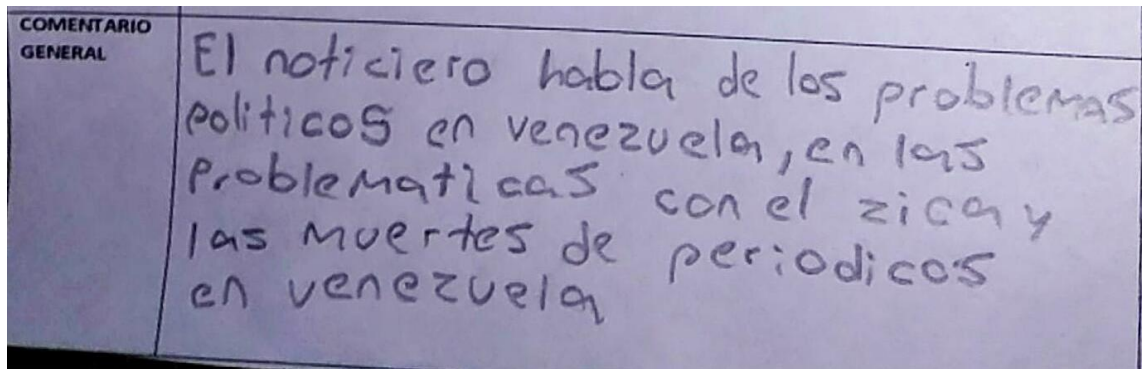 COMENTARIO
GENERAL
El noticiero habla de los problemas
politicos en venezuela, en las
problematicas con el zica y
las muertes de periodicos
en venezuela